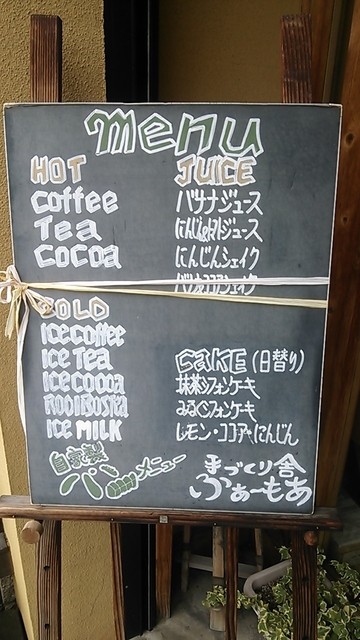 menu
HOT
coffee
Tea
cocoa
JUICE
バナナジュース
にんじん&りんごジュース
にんじんシェイク
バナナココアシェイク
COLD
Ice coffee
Ice Tea
Ice cocoa
ROOIBOSTEA
Ice MILK
CaKE(日替り)
抹茶シフォンケーキ
みるくシフォンケーキ
レモン・ココア・にんじん
自家製
パンメニュー
手づくり舎
ふぁーもあ